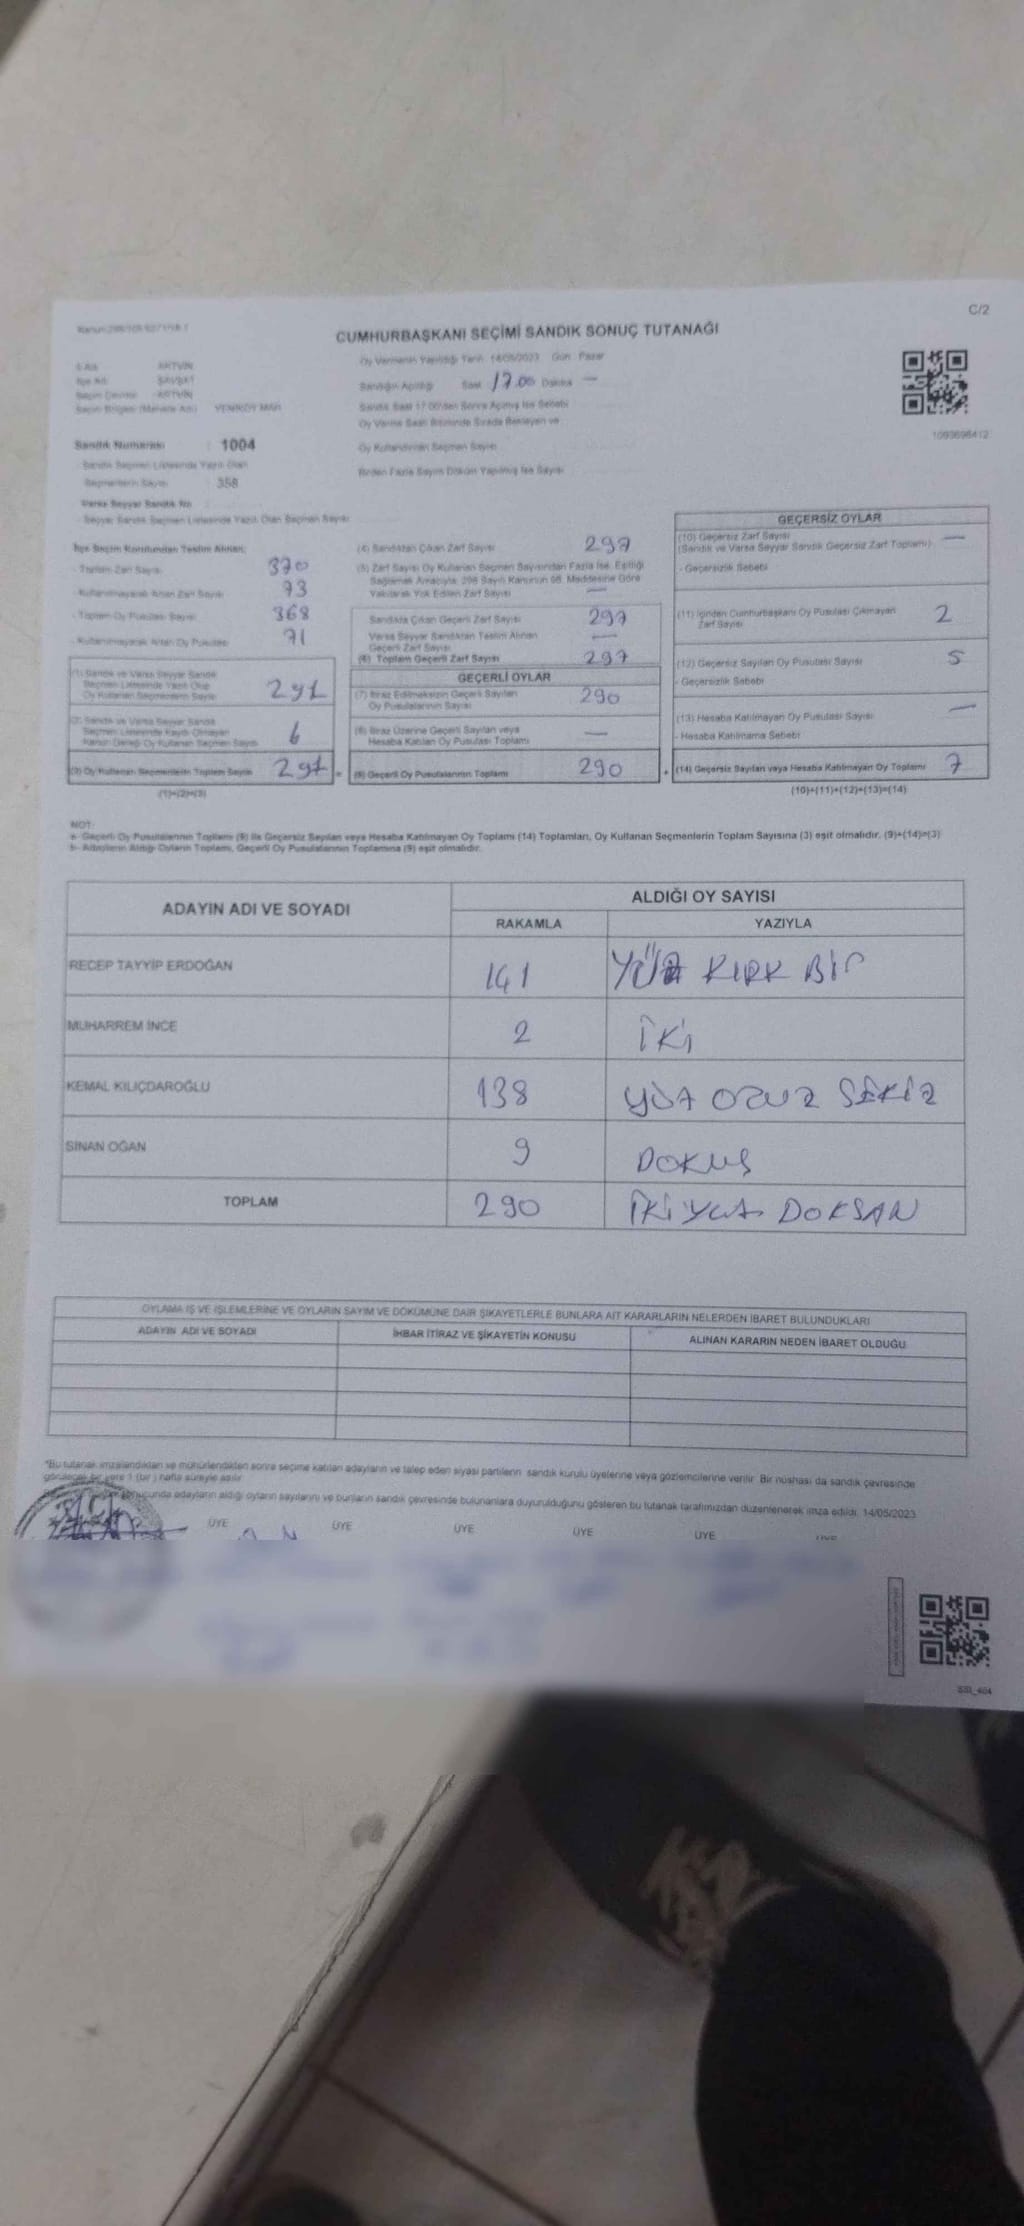 C/2
CUMHURBAŞKANI SEÇİMİ SANDIK SONUÇ TUTANAĞI
Oy Vermenin Yapıldığı Tarih 14/05/2023 Gün Pazar
İli Adı ARTVİN
İlçe Adı ŞAVŞAT
Seçim Çevresi ARTVİN
Seçim Bölgesi (Mahalle Adı) YENİKÖY MAH
Sandığın Açıldığı Saat 17.00 Dakika —
Sandık Saat 17:00'den Sonra Açılmış İse Sebebi
Oy Verme Saati Bitiminde Sırada Bekleyen ve
Oy Kullandırılan Seçmen Sayısı
Birden Fazla Sayım Döküm Yapılmış İse Sayısı
1093698412
Sandık Numarası : 1004
Sandık Seçmen Listesinde Yazılı Olan
Seçmenlerin Sayısı 358
Varsa Seyyar Sandık No
Seyyar Sandık Seçmen Listesinde Yazılı Olan Seçmen Sayısı
İlçe Seçim Kurulundan Teslim Alınan;
- Toplam Zarf Sayısı 370
- Kullanılmayarak Artan Zarf Sayısı 73
- Toplam Oy Pusulası Sayısı 368
- Kullanılmayarak Artan Oy Pusulası 71
(1) Sandık ve Varsa Seyyar Sandık
Seçmen Listesinde Yazılı Olup
Oy Kullanan Seçmenlerin Sayısı 291
(2) Sandık ve Varsa Seyyar Sandık
Seçmen Listesinde Kayıtlı Olmayan
Kanun Gereği Oy Kullanan Seçmen Sayısı 6
(3) Oy Kullanan Seçmenlerin Toplam Sayısı 297 =
(1)+(2)=(3)
(4) Sandıktan Çıkan Zarf Sayısı 297
(5) Zarf Sayısı Oy Kullanan Seçmen Sayısından Fazla İse, Eşitliği
Sağlamak Amacıyla; 298 Sayılı Kanunun 98. Maddesine Göre
Yakılarak Yok Edilen Zarf Sayısı —
Sandıkta Çıkan Geçerli Zarf Sayısı 297
Varsa Seyyar Sandıktan Teslim Alınan
Geçerli Zarf Sayısı —
(6) Toplam Geçerli Zarf Sayısı 297
GEÇERLİ OYLAR
(7) İtiraz Edilmeksizin Geçerli Sayılan
Oy Pusulalarının Sayısı 290
(8) İtiraz Üzerine Geçerli Sayılan veya
Hesaba Katılan Oy Pusulası Toplamı —
(9) Geçerli Oy Pusulalarının Toplamı 290 +
GEÇERSİZ OYLAR
(10) Geçersiz Zarf Sayısı —
(Sandık ve Varsa Seyyar Sandık Geçersiz Zarf Toplamı)
- Geçersizlik Sebebi
(11) İçinden Cumhurbaşkanı Oy Pusulası Çıkmayan
Zarf Sayısı 2
(12) Geçersiz Sayılan Oy Pusulası Sayısı 5
- Geçersizlik Sebebi
(13) Hesaba Katılmayan Oy Pusulası Sayısı —
- Hesaba Katılmama Sebebi
(14) Geçersiz Sayılan veya Hesaba Katılmayan Oy Toplamı 7
(10)+(11)+(12)+(13)=(14)
NOT:
a- Geçerli Oy Pusulalarının Toplamı (9) ile Geçersiz Sayılan veya Hesaba Katılmayan Oy Toplamı (14) Toplamları, Oy Kullanan Seçmenlerin Toplam Sayısına (3) eşit olmalıdır. (9)+(14)=(3)
b- Adayların Aldığı Oyların Toplamı, Geçerli Oy Pusulalarının Toplamına (9) eşit olmalıdır.
ADAYIN ADI VE SOYADI ALDIĞI OY SAYISI
RAKAMLA YAZIYLA
RECEP TAYYİP ERDOĞAN 141 YÜZ KIRK BİR
MUHARREM İNCE 2 İKİ
KEMAL KILIÇDAROĞLU 138 YÜZ OTUZ SEKİZ
SİNAN OĞAN 9 DOKUS
TOPLAM 290 İKİYÜZ DOKSAN
OYLAMA İŞ VE İŞLEMLERİNE VE OYLARIN SAYIM VE DÖKÜMÜNE DAİR ŞİKAYETLERLE BUNLARA AİT KARARLARIN NELERDEN İBARET BULUNDUKLARI
ADAYIN ADI VE SOYADI İHBAR İTİRAZ VE ŞİKAYETİN KONUSU ALINAN KARARIN NEDEN İBARET OLDUĞU
*Bu tutanak imzalandıktan ve mühürlendikten sonra seçime katılan adayların ve talep eden siyasi partilerin sandık kurulu üyelerine veya gözlemcilerine verilir. Bir nüshası da sandık çevresinde
görülecek bir yere 1 (bir) hafta süreyle asılır.
sonucunda adayların aldığı oyların sayılarını ve bunların sandık çevresinde bulunanlara duyurulduğunu gösteren bu tutanak tarafımızdan düzenlenerek imza edildi. 14/05/2023
ÜYE ÜYE ÜYE ÜYE ÜYE